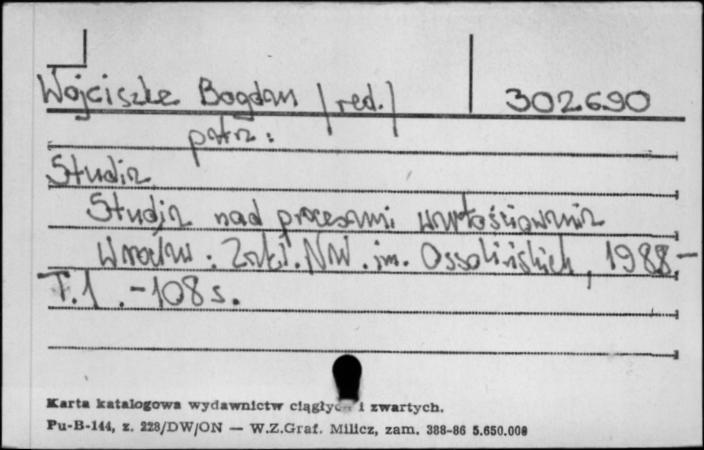 Wojciszke Bogdan /red./ 302690
patrz:
Studia
Studia nad procesami wartościowania
Wrocław. Zakł. Nar. im. Ossolińskich, 1988-
T.1.-108 s.
Karta katalogowa wydawnictw ciągłych i zwartych.
Pu-B-144, z. 228/DW/ON — W.Z.Graf. Milicz, zam. 388-86 5.650.000